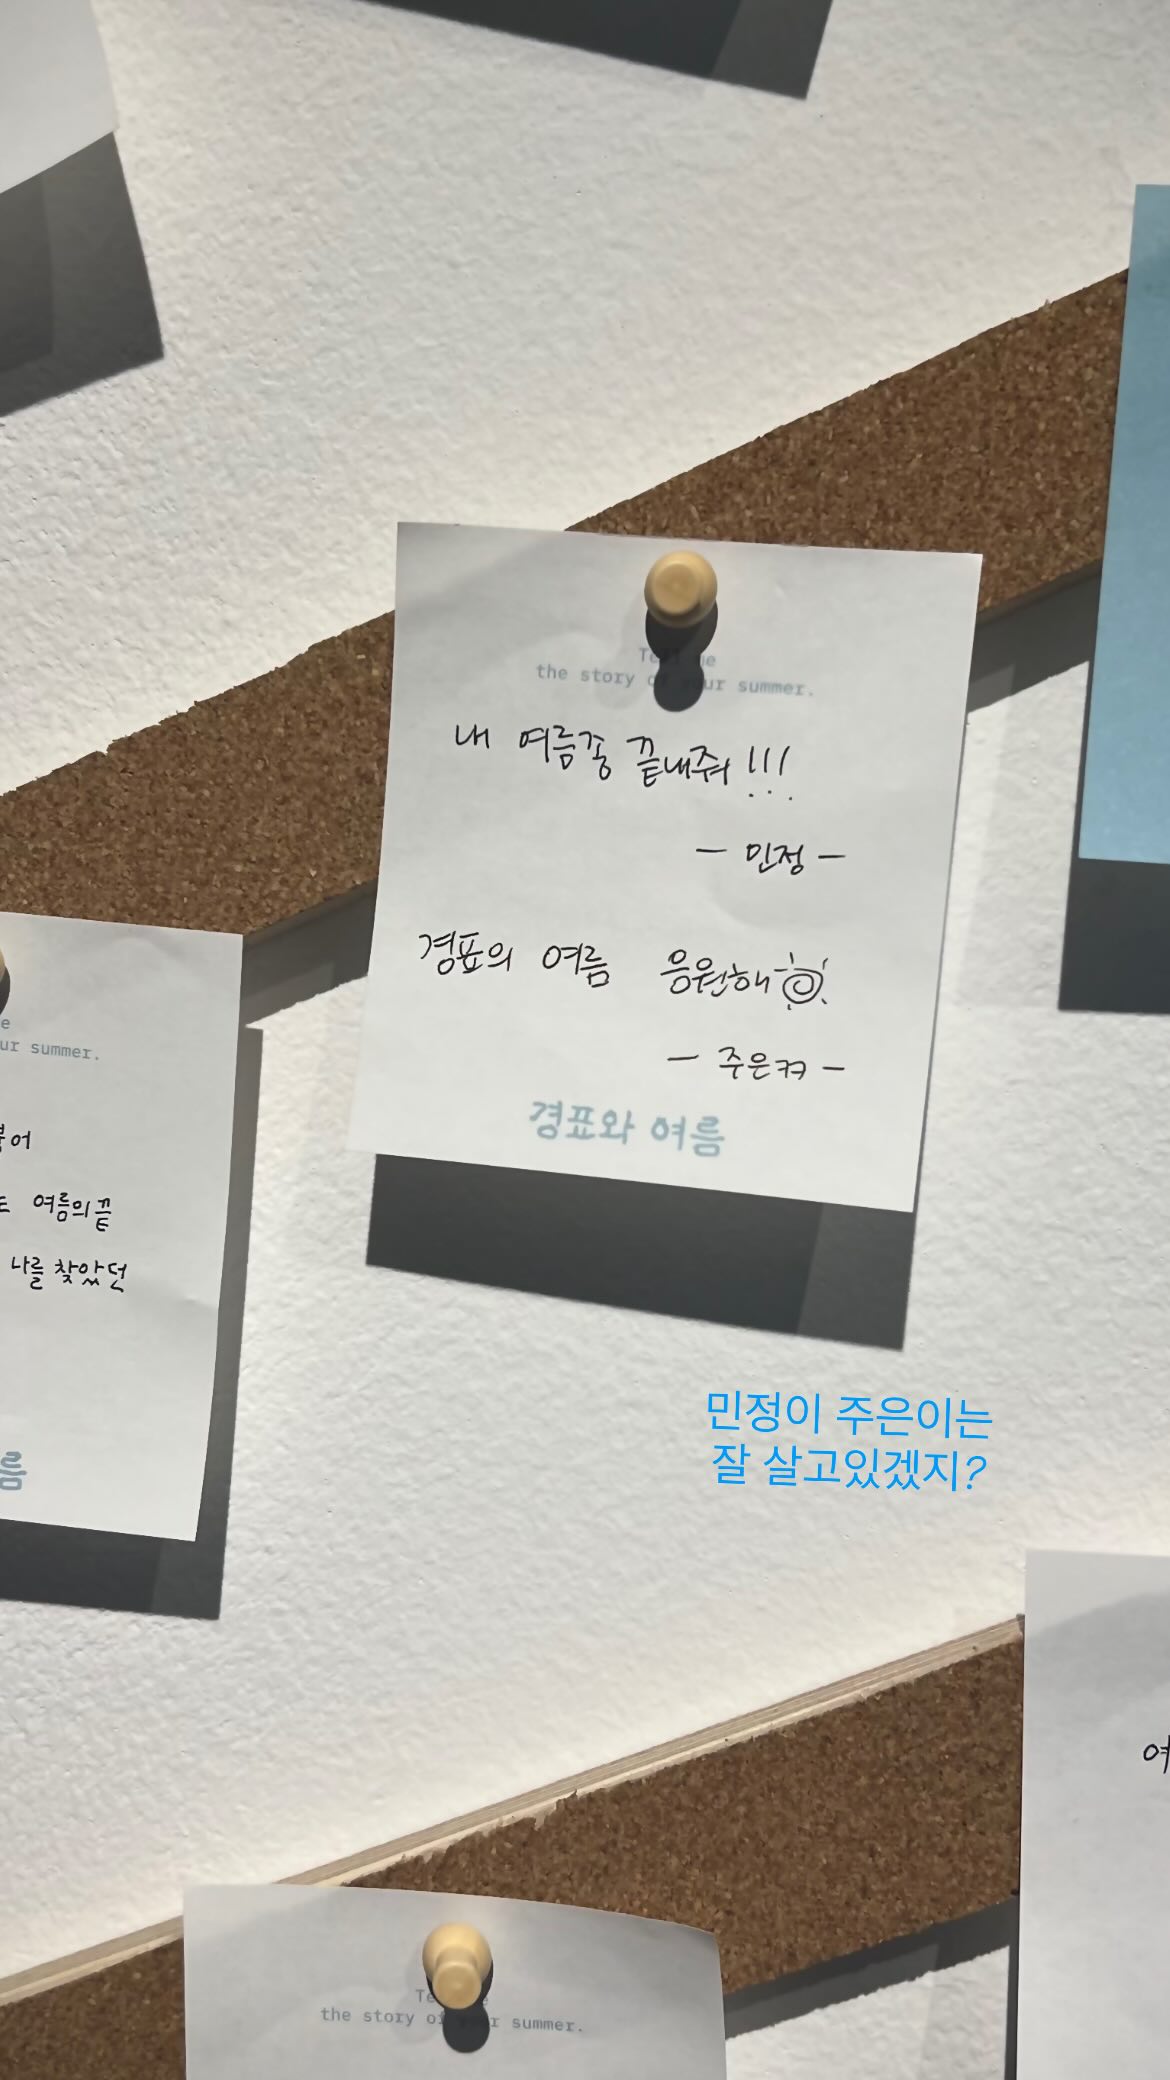 the story of your summer.
내 여름 끝내줘!!!
- 민정 -
경표의 여름 응원해
- 주은ㅋㅋ -
경표와 여름
ur summer.
여름의 끝
나를 찾았던
름
민정이 주은이는
잘 살고있겠지?
여
the story of your summer.